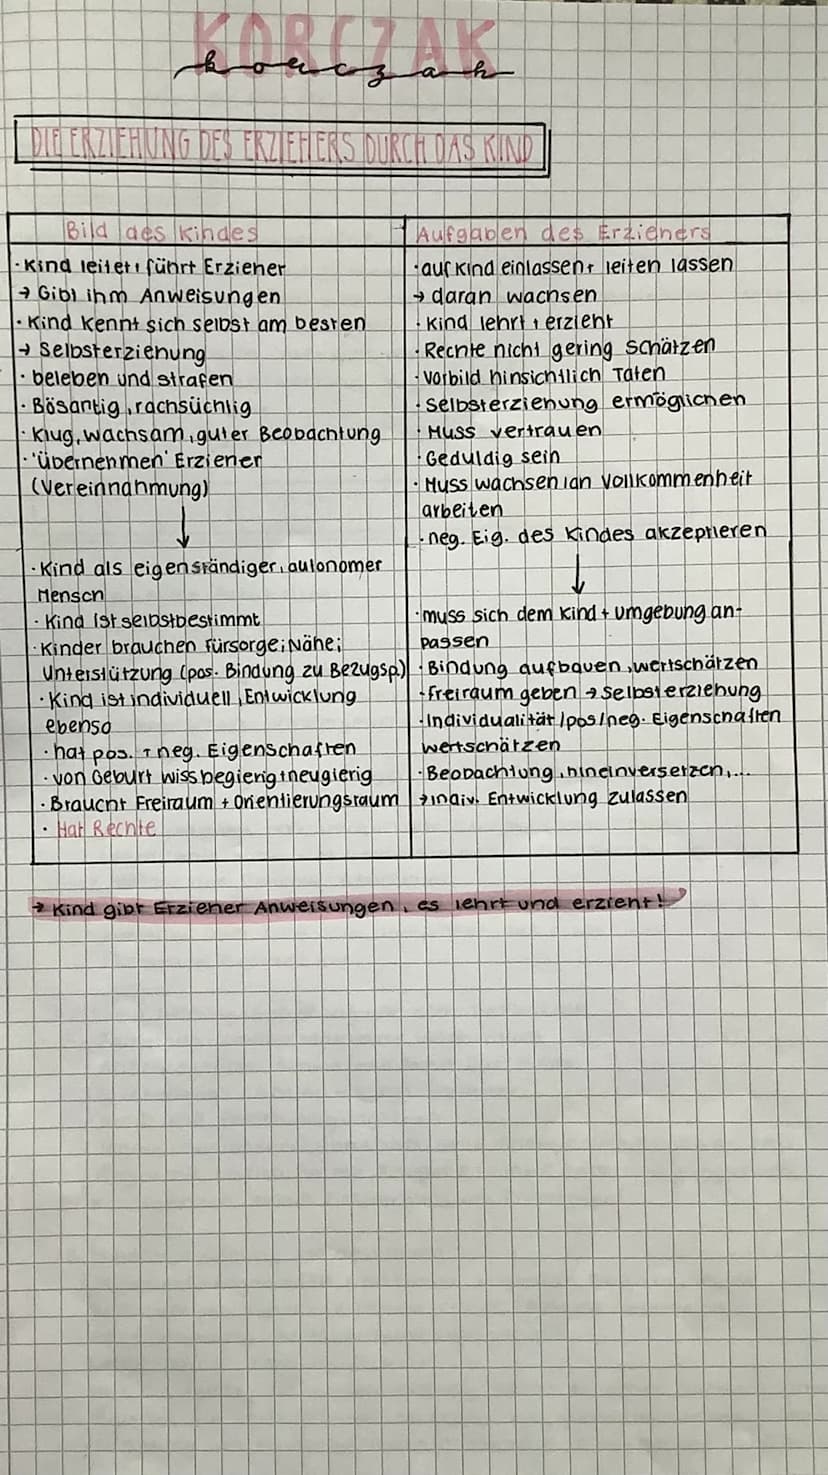 KORCZAK
korczak
DIE ERZIEHUNG DES ERZIEHERS DURCH DAS KIND
Bild des Kindes
· Kind leitet, führt Erzieher
→ Gibt ihm Anweisungen
· Kind kennt sich selbst am besten
→ Selbsterziehung
· beleben und strafen
· Bösartig, rachsüchtig
· Klug, wachsam, guter Beobachtung
· 'übernehmen' Erzieher
(Vereinnahmung)
↓
· Kind als eigenständiger, autonomer
Mensch
· Kind ist selbstbestimmt
· Kinder brauchen Fürsorge; Nähe;
Unterstützung (pos. Bindung zu Bezugsp.)
· Kind ist individuell, Entwicklung
ebenso
· hat pos. + neg. Eigenschaften
· von Geburt wissbegierig + neugierig
· Braucht Freiraum + Orientierungsraum
· Hat Rechte
Aufgaben des Erziehers
· auf Kind einlassen + leiten lassen
→ daran wachsen
· Kind lehrt, erzieht
· Rechte nicht gering schätzen
· Vorbild hinsichtlich Taten
· Selbsterziehung ermöglichen
· Muss vertrauen
· Geduldig sein
· Muss wachsen, an Vollkommenheit
arbeiten
· neg. Eig. des Kindes akzeptieren
↓
· muss sich dem Kind + Umgebung an-
passen
· Bindung aufbauen, wertschätzen
· Freiraum geben → Selbsterziehung
· Individualität/pos/neg. Eigenschaften
wertschätzen
· Beobachtung, hineinversetzen,...
→ indiv. Entwicklung zulassen
→ Kind gibt Erzieher Anweisungen, es lehrt und erzieht!